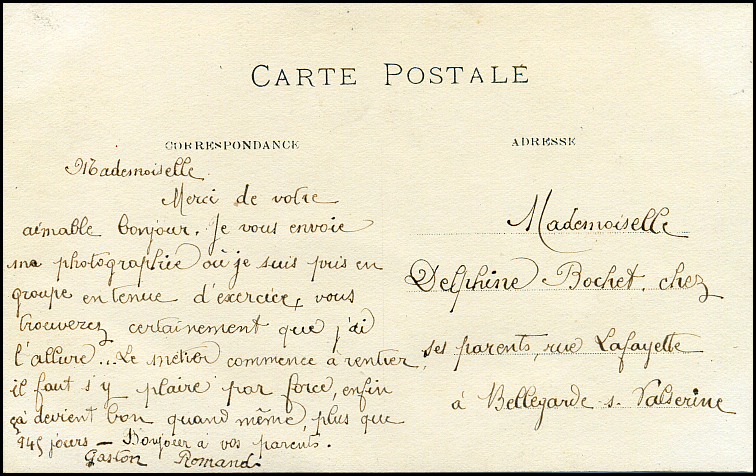 CARTE POSTALE
CORRESPONDANCE
Mademoiselle
Merci de votre
aimable bonjour. Je vous envoie
ma photographie où je suis pris en
groupe en tenue d'exercice, vous
trouverez certainement que j'ai
l'allure... Le métier commence à rentrer,
il faut s'y plaire par force, enfin
ça devient bon quand même, plus que
945 jours — Bonjour à vos parents.
Gaston Romand.
ADRESSE
Mademoiselle
Delphine Bochet, chez
ses parents, rue Lafayette
à Bellegarde s. Valserine